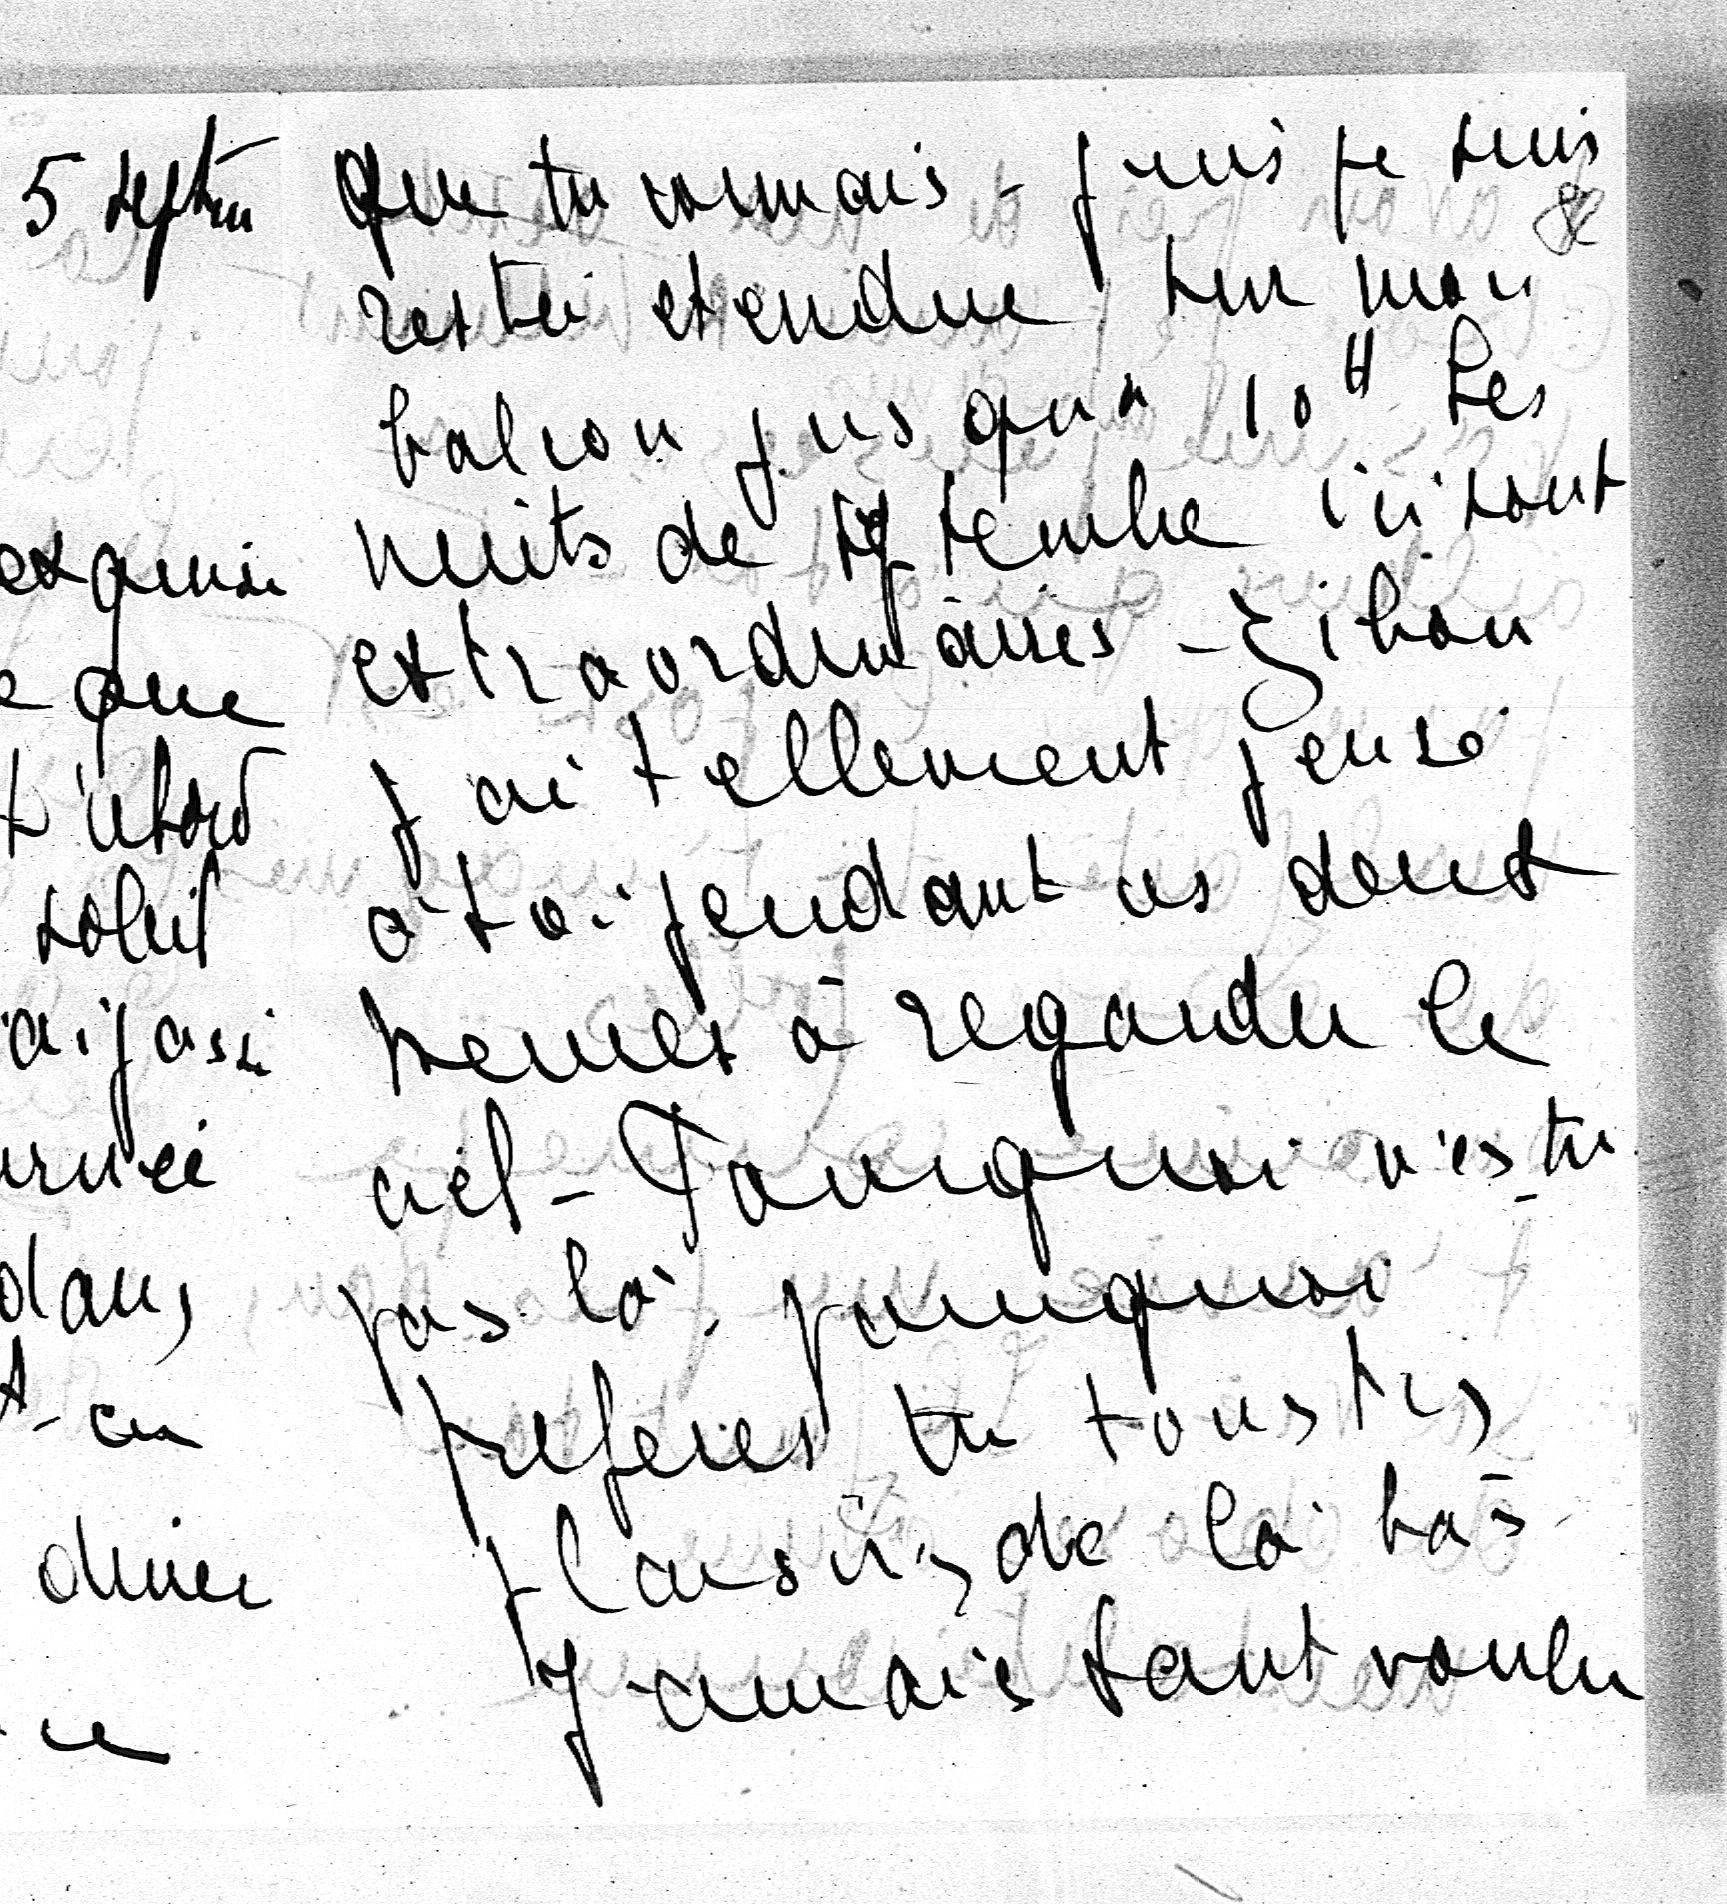 5 septem
exquise
e que
t d'abord
soleil
ai passé
urnée
dans
t - en
diner
ce
que tu connais - puis je suis
restée etendue sur mon
balcon jusqu'a 10H Les
nuits de septembre ici sont
extraordinaires - Zibou
j'ai tellement pensé
à toi pendant ces deux
heures à regarder le
ciel - Pourquoi n'es tu
pas là, pourquoi
preferes tu tous tes
plaisirs de là bas
J'aimais tant vouloir